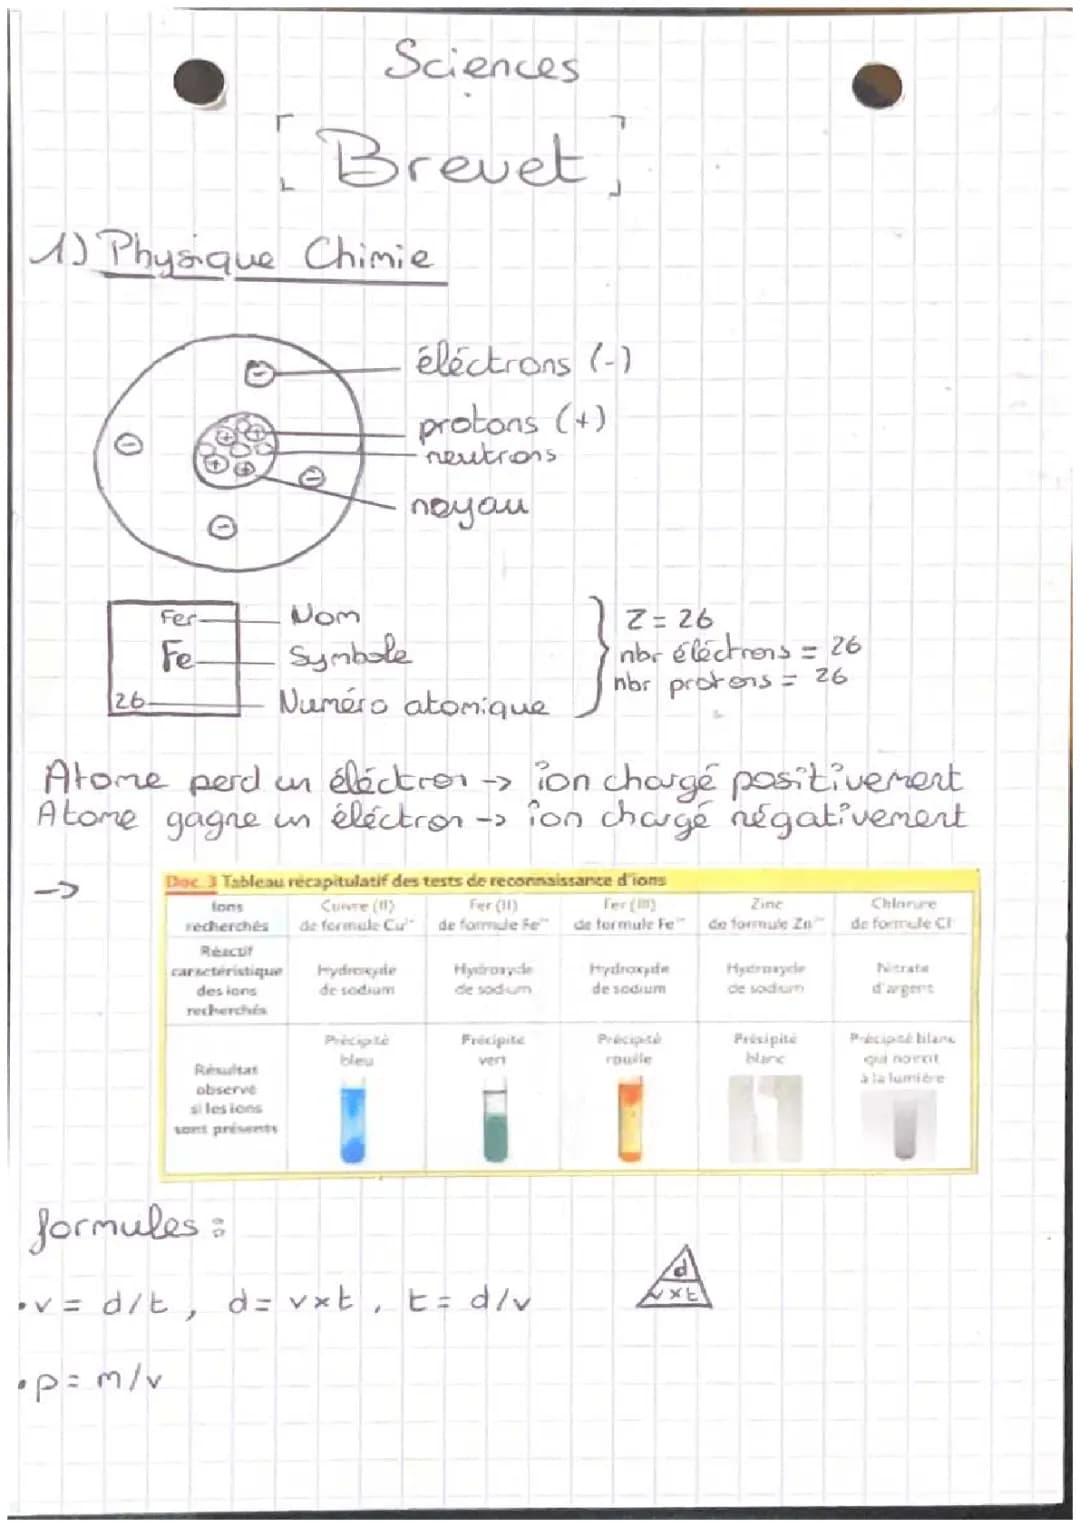 Sciences
[Brevet]
1) Physique Chimie
éléctrons (-)
protons (+)
neutrons
noyau
Fer
Nom
Fe
Symbole
26
Numéro atomique
Z = 26
nbr éléctrons = 26
nbr protons = 26
Atome perd un éléctron -> ion chargé positivement
Atome gagne un éléctron -> ion chargé négativement
->
Doc. 3 Tableau récapitulatif des tests de reconnaissance d'ions
Ions recherchés
Cuivre (II) de formule Cu
Fer (II) de formule Fe
Fer (III) de formule Fe
Zinc de formule Zn
Chlorure de formule Cl
Réactif caractéristique des ions recherchés
Hydroxyde de sodium
Hydroxyde de sodium
Hydroxyde de sodium
Hydroxyde de sodium
Nitrate d'argent
Résultat observé si les ions sont présents
Précipité bleu
Précipité vert
Précipité rouille
Présipité blanc
Précipité blanc qui noircit à la lumière
formules :
• v = d/t, d = v×t, t = d/v
d
v×t
• p = m/v